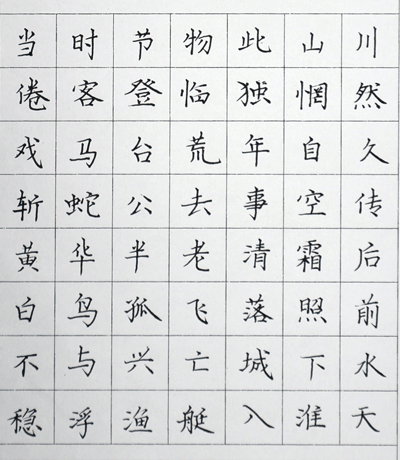 当时节物此山川
倦客登临独惘然
戏马台荒年自久
斩蛇公去事空传
黄华半老清霜后
白鸟孤飞落照前
不与兴亡城下水
稳浮渔艇入淮天